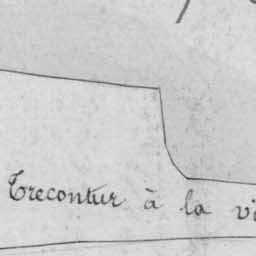 Trecontur à la vi